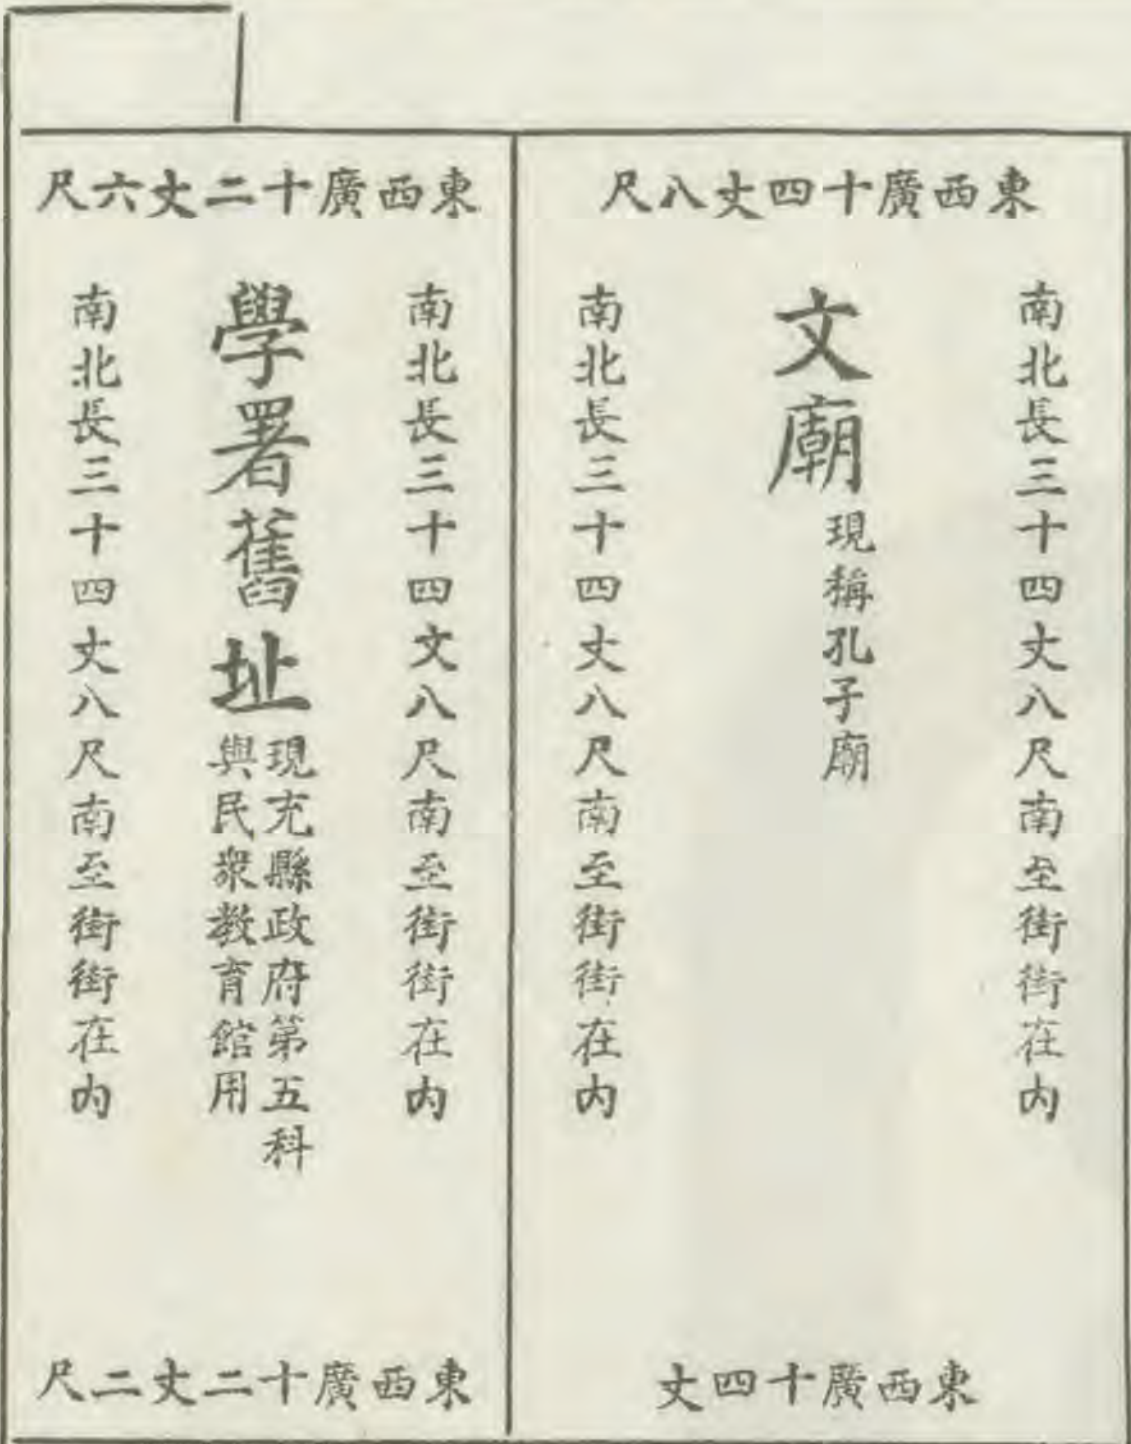 東西廣十四丈八尺
南北長三十四丈八尺南至街街在内
文廟
現稱孔子廟
南北長三十四丈八尺南至街街在内
東西廣十四丈
東西廣十二丈六尺
南北長三十四文八尺南至街街在内
學署舊址
現充縣政府第五科
與民衆教育館用
南北長三十四丈八尺南至街街在内
東西廣十二丈二尺